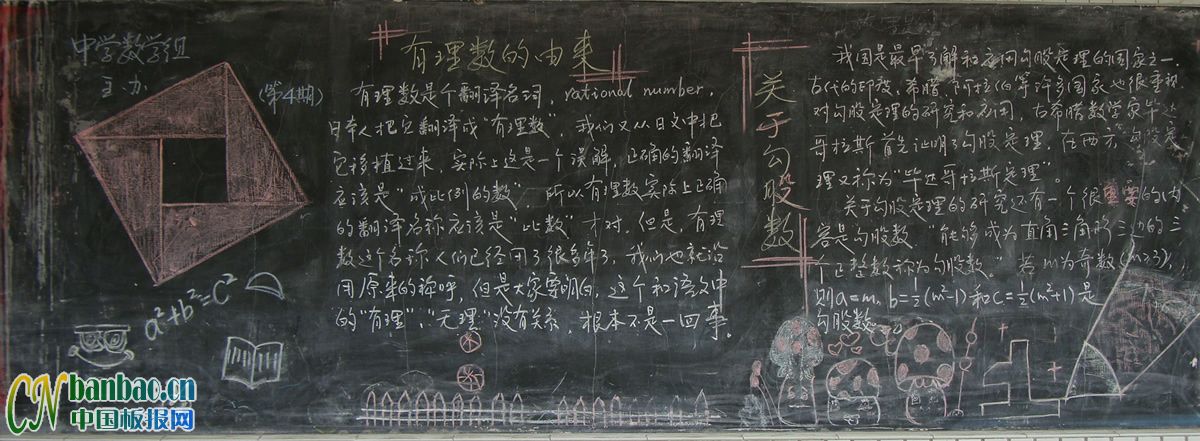 中学数学组
主办
(第4期)
a²+b²=c²
有理数的由来
有理数是个翻译名词，rational number，
日本人把它翻译成“有理数”，我们又从日文中把
它移植过来，实际上这是一个误解，正确的翻译
应该是“成比例的数”，所以有理数实际上正确
的翻译名称应该是“比数”才对。但是，有理
数这个名称人们已经用了很多年了，我们也就沿
用原来的称呼，但是大家要明白，这个和语文中
的“有理”、“无理”没有关系，根本不是一回事。
关于勾股数
我国是最早了解和应用勾股定理的国家之一，
古代的印度、希腊、阿拉伯等许多国家也很重视
对勾股定理的研究和应用，古希腊数学家毕达
哥拉斯首先证明了勾股定理，在西方，勾股定
理又称为“毕达哥拉斯定理”。
关于勾股定理的研究还有一个很重要的内
容是勾股数，“能够成为直角三角形三边的三
个正整数称为勾股数。”若m为奇数(m≥3)，
则a=m，b=½(m²-1)和c=½(m²+1)是
勾股数
CN banbao.cn
中国板报网